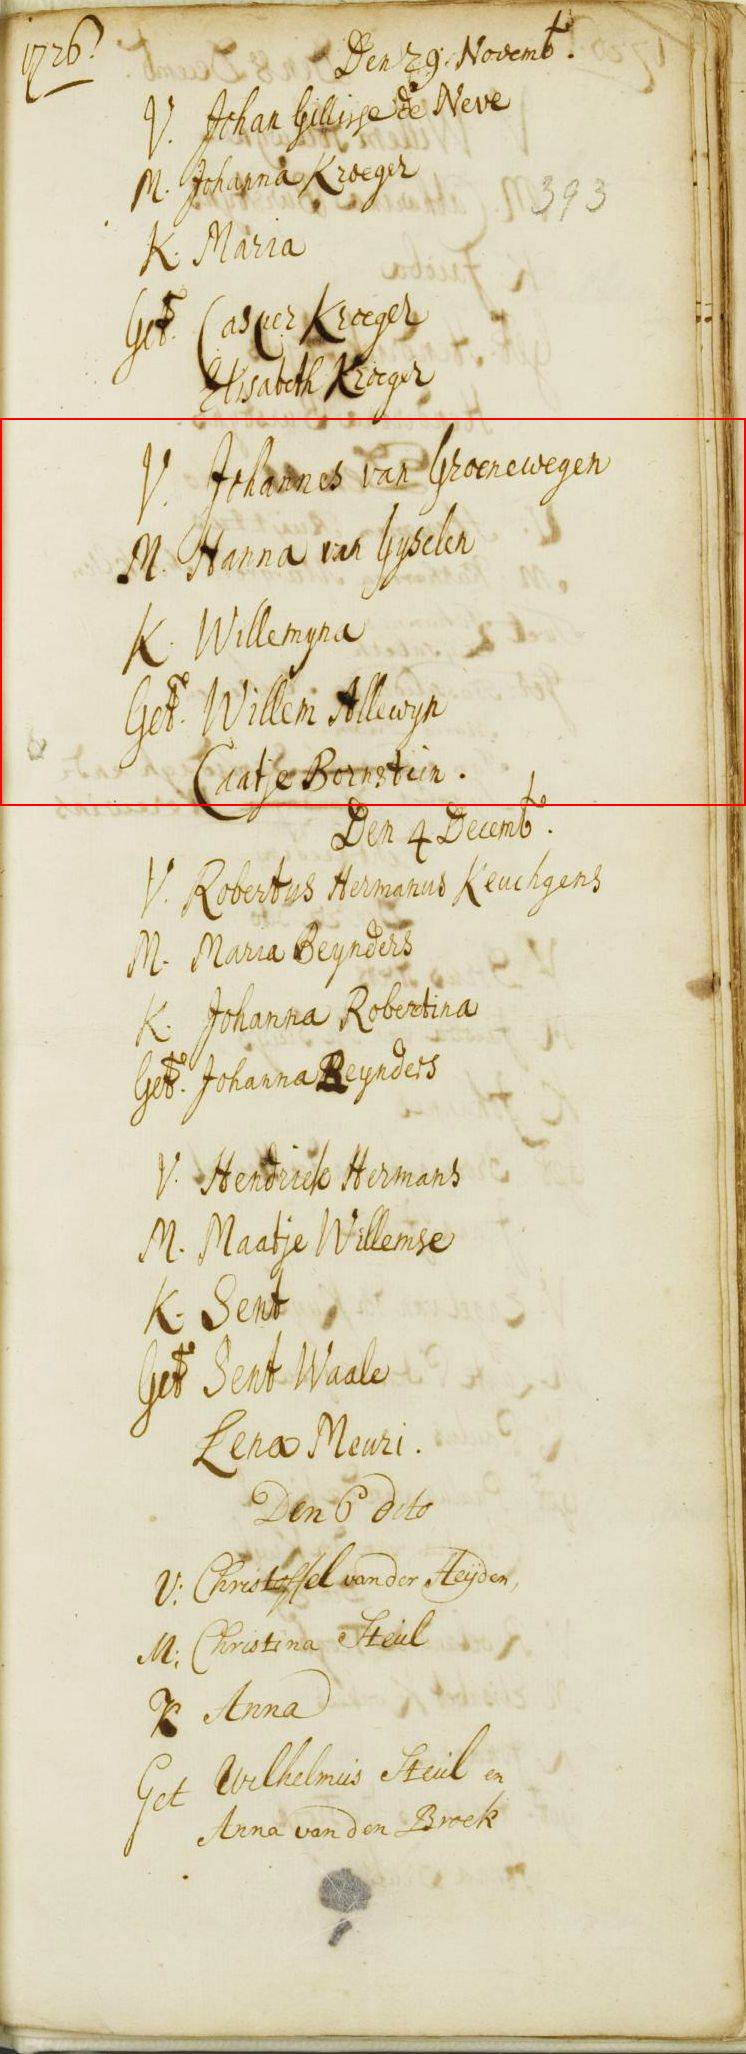 1726.
Den 29. Novemb<sup>r</sup>.
V. Johan Gillisse de Neve
M. Johanna Kroeger
393
K. Maria
Get. Casper Kroeger
Elisabeth Kroeger
V. Johannes van Groenewegen
M. Hanna van Gyselen
K. Willemyna
Get. Willem Allewyn
Caatje Bornstein.
Den 4 Decemb<sup>r</sup>.
V. Robertus Hermanus Keuchgens
M. Maria Beynders
K. Johanna Robertina
Get. Johanna Reynders
V. Hendriek Hermans
M. Maatje Willemse
K. Sent
Get Sent Waale
Lena Meuri.
Den 6 dito
V: Christoffel van der Heijden,
M: Christina Steul
K Anna
Get Wilhelmus Steul en
Anna van den Broek